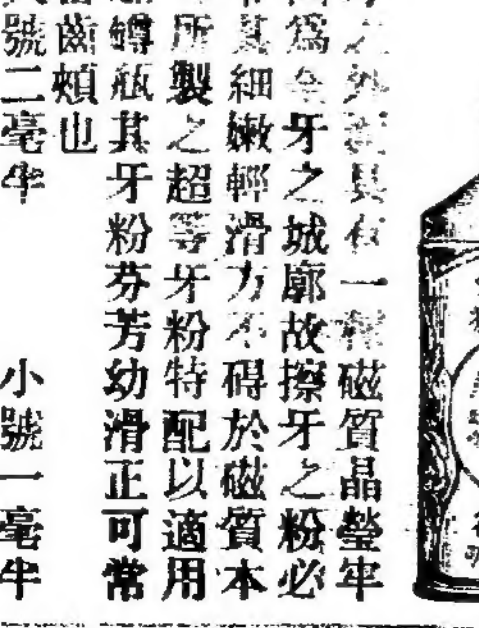 之外面具有一種磁質晶瑩牢
為全牙之城廓故擦牙之粉必
其細嫩輕滑方不碍於磁質本
所製之超等牙粉特配以適用
罇瓶其牙粉芬芳幼滑正可常
齒頰也
號二毫半 小號一毫半